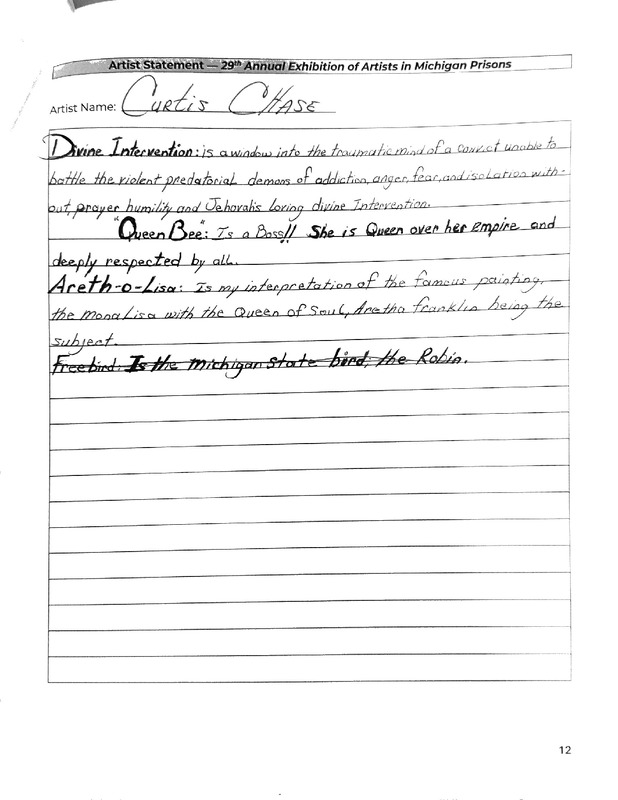 Artist Statement — 29th Annual Exhibition of Artists in Michigan Prisons
Artist Name: Curtis Chase
Divine Intervention: is a window into the traumatic mind of a convict unable to
battle the violent predatorial demons of addiction, anger, fear, and isolation with-
out, prayer humility and Jehovah's loving divine Intervention.
"Queen Bee": Is a Boss!! She is Queen over her Empire and
deeply respected by all.
Areth-o-Lisa: Is my interpretation of the famous painting,
the mona Lisa with the Queen of Soul, Aretha franklin being the
subject.
Freebird: Is the michigan State bird, the Robin.
12